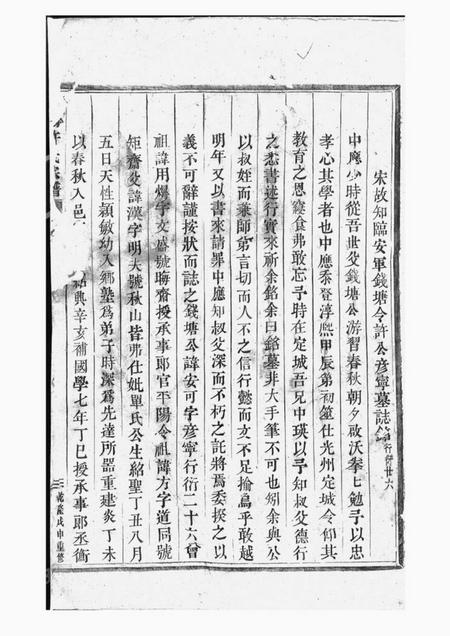 宋故知臨安軍錢塘令許公彥寧墓誌銘行衍廿六
中應少時從吾叔父錢塘公游習春秋朝夕啟沃拳七勉予以忠
孝心其學者也中應忝登淳熙甲辰第初筮仕光州定城令仰其
教育之恩寢食弗敢忘予時在定城吾兄中瑛以予知叔父德行
之悉書述行實來祈余銘余曰銘墓非大手筆不可也矧余與公
以叔姪而兼師第言切而人不之信行懿而文不足揄烏乎敢越
明年又以書來請罪中應知叔父深而不朽之託將焉委揆之以
義不可辭謹按狀而誌之錢塘公諱安可字彥寧行衍二十六曾
祖諱用 字文盛號晦齋授承事郎官平陽令祖諱方字道同號
矩齋父諱漢字明夫號秋山皆弗仕妣單氏公生紹聖丁丑八月
五日天性穎敏幼入鄉塾為弟子時深為先達所器重建炎丁未
以春秋入邑 紹興辛亥補國學七年丁巳授承事郎丞衡
許氏宗譜
乾隆戊申重修